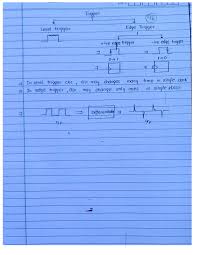 Trigger
Level trigger
Edge Trigger
+ve edge trigger
-ve edge trigger
0→1
1→0
In level trigger ckt, o/p may changes many time in single clock
In edge trigger, o/p may change only once in single clock
Differentiator